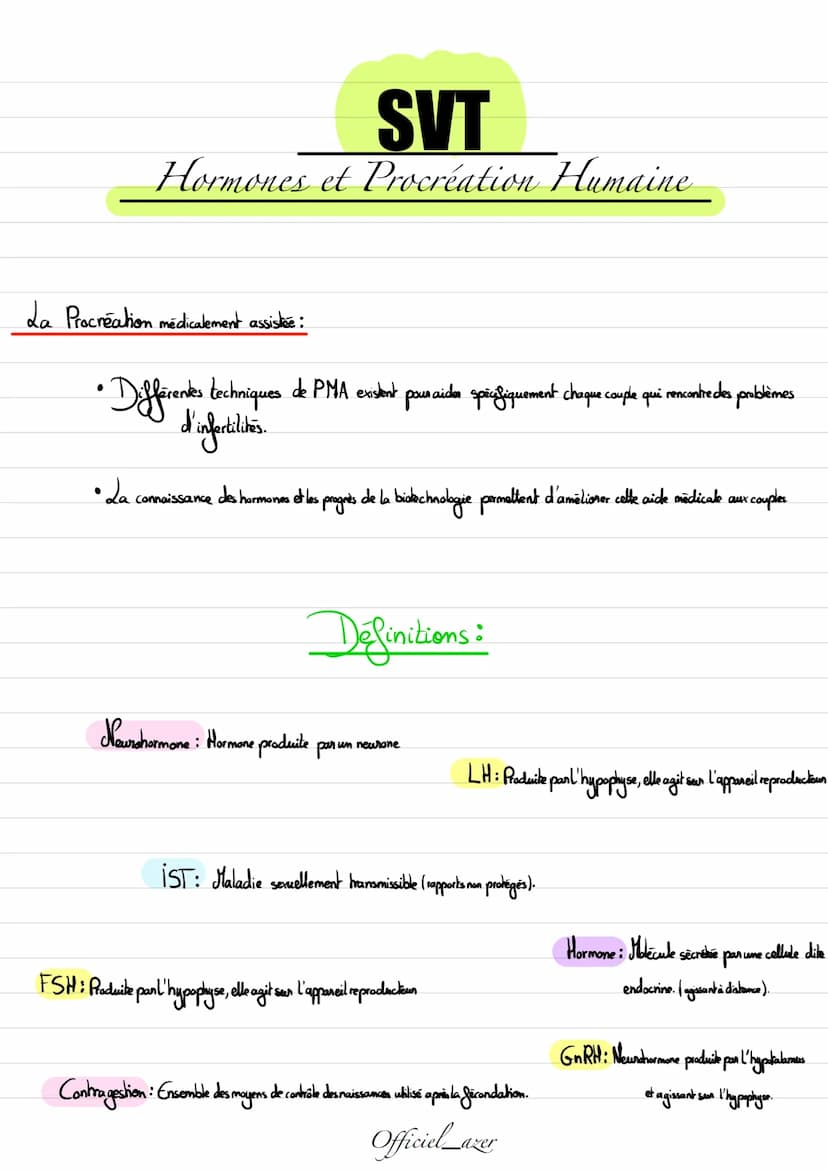 SVT
Hormones et Procréation Humaine
La Procréation médicalement assistée :
• Différentes techniques de PMA existent pour aider spécifiquement chaque couple qui rencontre des problèmes
d'infertilités.
• La connaissance des hormones et les progrès de la biotechnologie permettent d'améliorer cette aide médicale aux couples
Définitions :
Neurohormone : Hormone produite par un neurone
LH : Produite par l'hypophyse, elle agit sur l'appareil reproducteur
IST : Maladie sexuellement transmissible (rapports non protégés).
Hormone : Molécule sécrétée par une cellule dite
endocrine. (agissant à distance).
FSH : Produite par l'hypophyse, elle agit sur l'appareil reproducteur
GnRH : Neurohormone produite par l'hypotalamus
et agissant sur l'hypophyse.
Contragestion : Ensemble des moyens de contrôle des naissances utilisé après la fécondation.
Officiel_azer